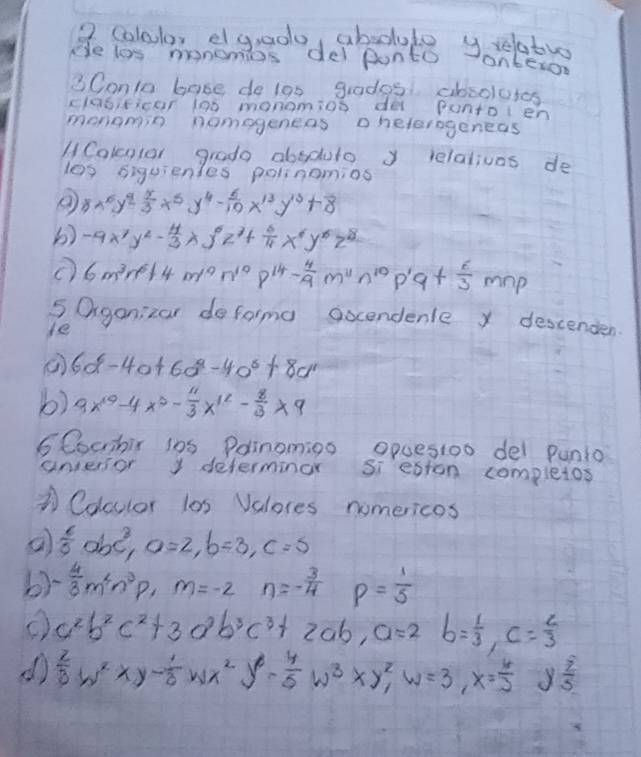 2 Calcular el grado absoluto y relativo
de los monomios del punto anterior
3 Con la base de los grados absolutos
clasificar los monomios del punto 1 en
monomin homogeneas o heterogeneas
4 Calcular grado absoluto y relativos de
los siguientes polinomios
a) 8x⁶y² - 4/3 x⁵y⁴ - 6/10 x¹³y¹⁰ + 8
b) -9x⁷y² - 4/3 x y⁸z⁷ + 6/4 x⁶y⁶z⁸
c) 6m³n⁶ + 4 m¹⁰n¹⁰p¹⁴ - 4/9 m¹¹n¹⁰p¹q + 6/3 mnp
5 Organizar de forma ascendente y descenden
te
a) 6a² - 4a + 6a⁸ - 4a⁶ + 8a¹¹
b) 9x¹⁰ - 4x⁵ - 4/3 x¹² - 8/3 x9
6 Escribir los Polinomios opuestos del punto
anterior y determinar si estan completos
7) Calcular los Valores numericos
a) 6/5 abc³, a=2, b=3, c=5
b) -4/3 m²n³p, m=-2 n=-3/4 p=1/5
c) a²b²c² + 3a³b³c³ + 2ab, a=2 b=1/3, c=2/3
d) 2/3 w²xy - 1/5 wx²y⁸ - 4/5 w³xy², w=3, x=4/5 y 2/5